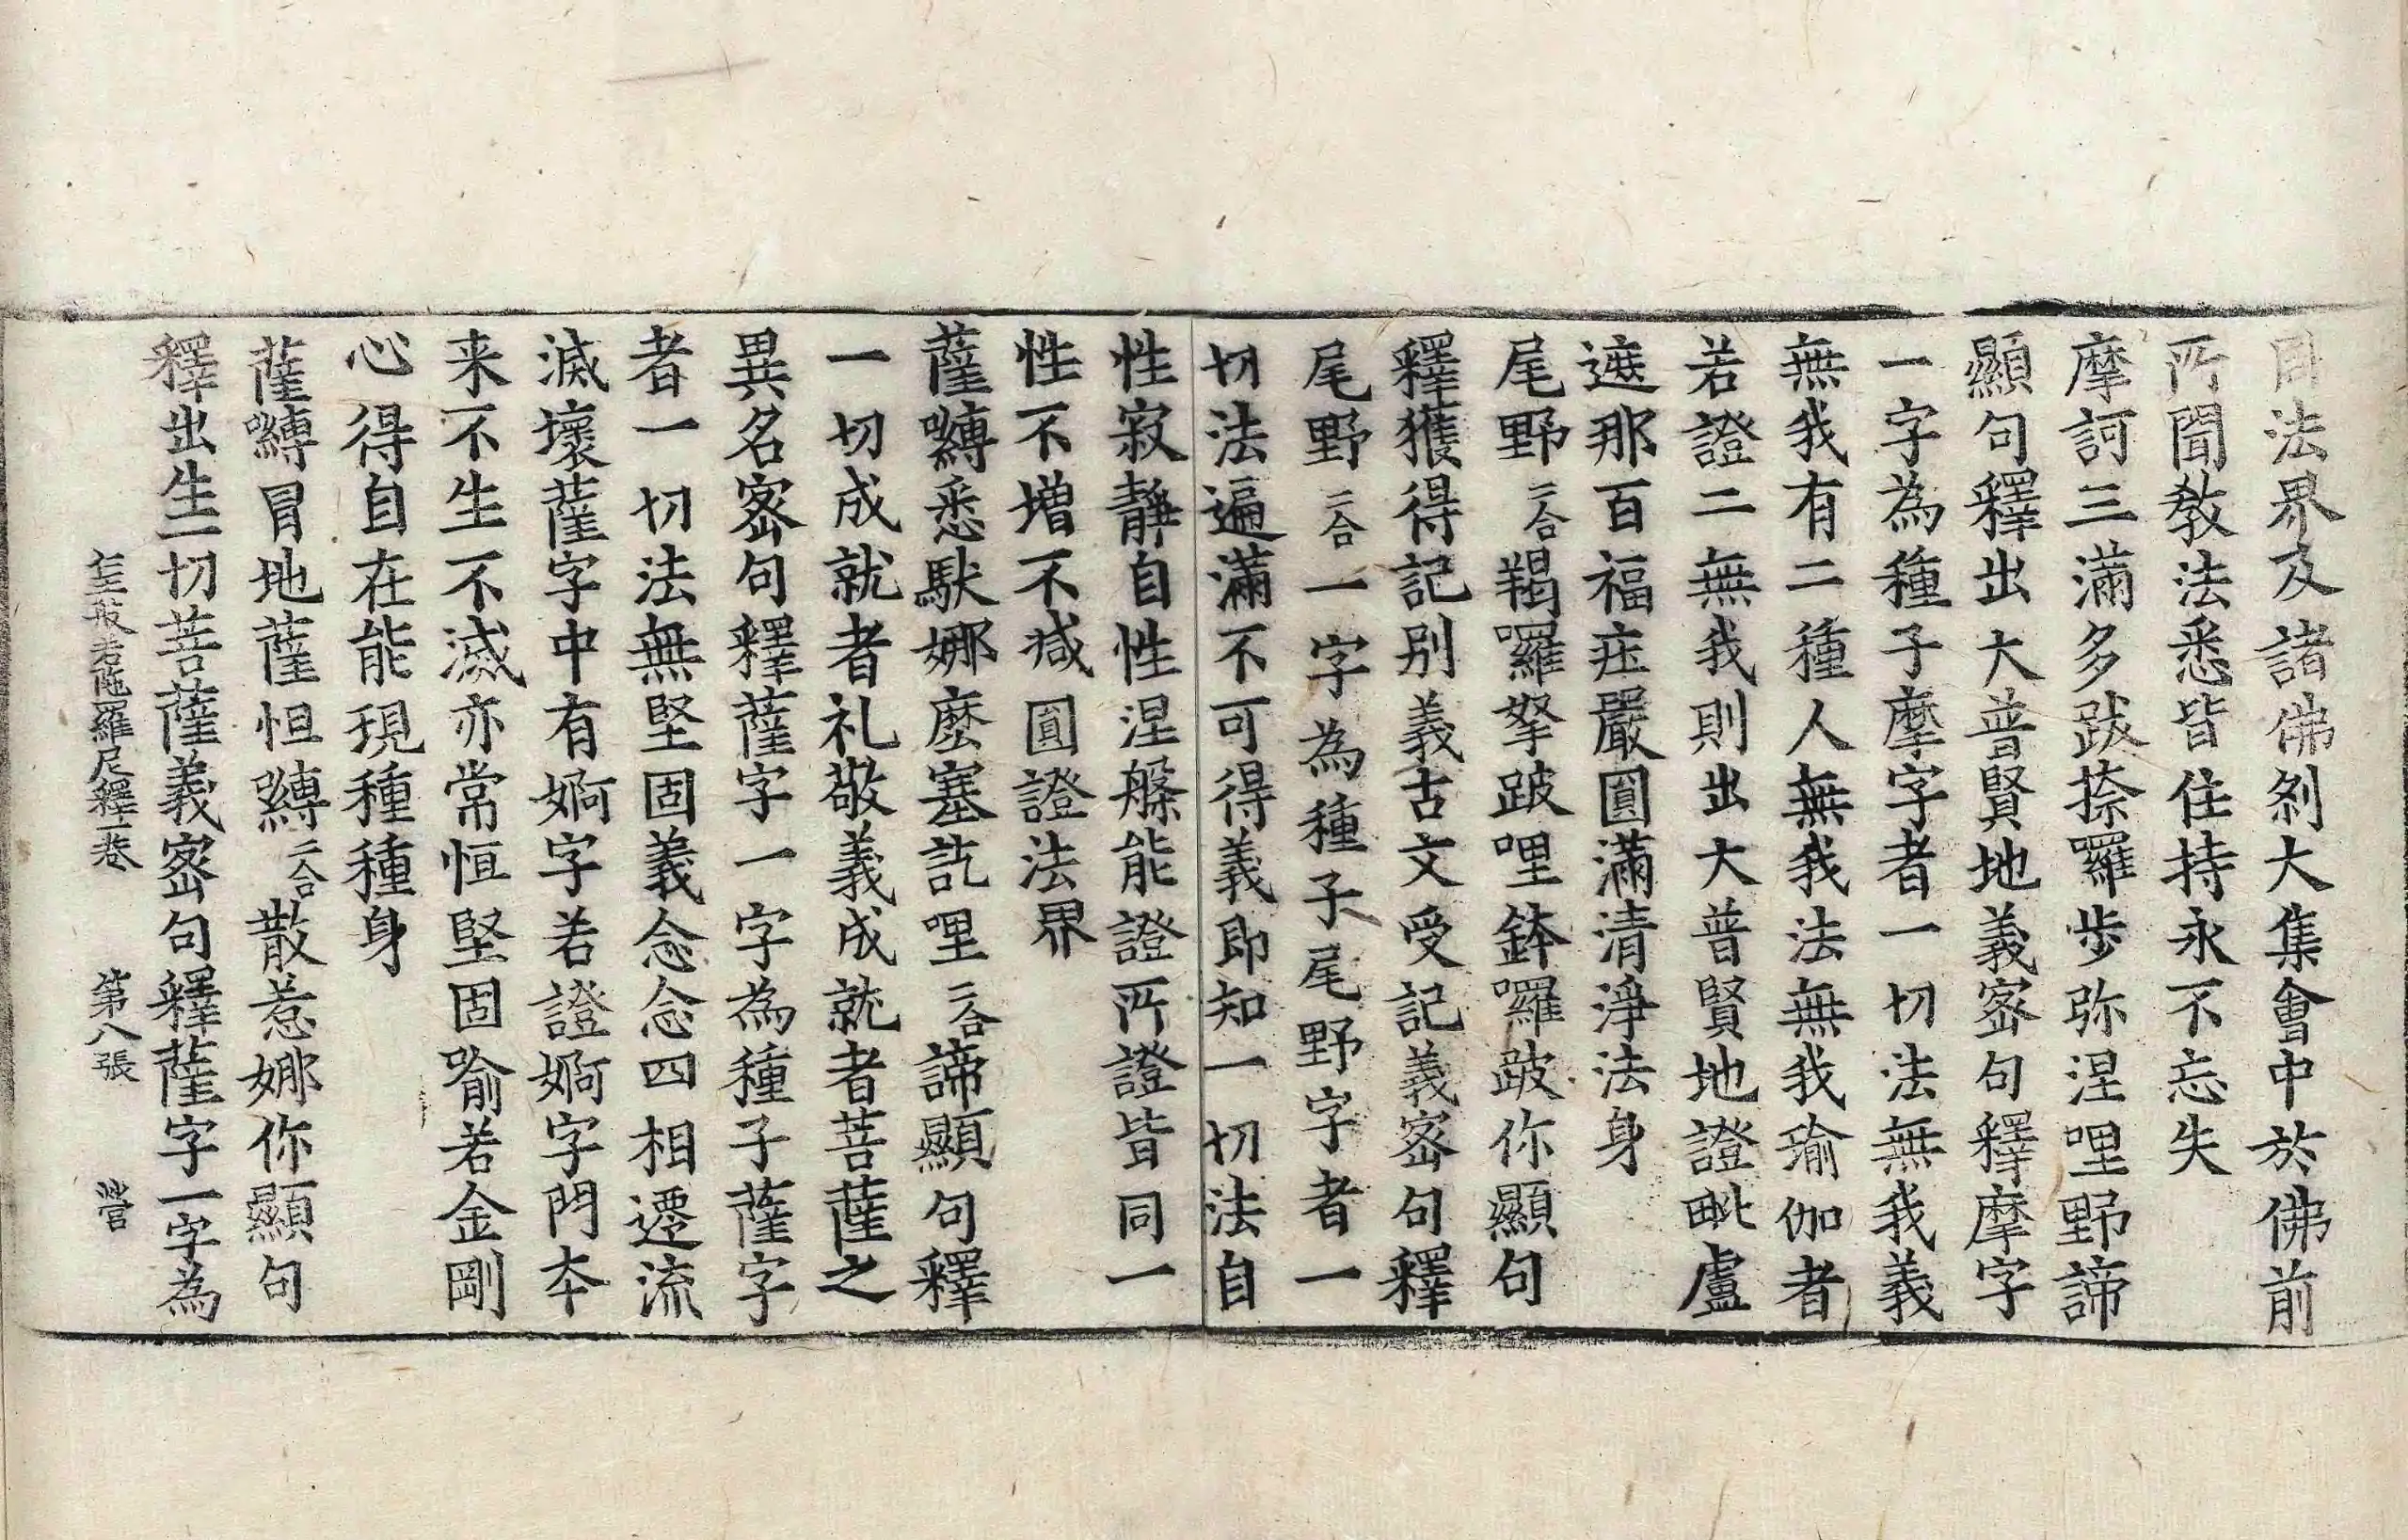 法界及諸佛剎大集會中於佛前
所聞教法悉皆住持永不忘失
摩訶三滿多跋捺羅步弥涅哩野諦
顯句釋出大普賢地義密句釋摩字
一字為種子摩字者一切法無我義
無我有二種人無我法無我瑜伽者
若證二無我則出大普賢地證毗盧
遮那百福庄嚴圓滿清淨法身
尾野二合羯囉拏跛哩鉢囉跛你顯句
釋獲得記別義古文受記義密句釋
尾野二合一字為種子尾野字者一
切法遍滿不可得義即知一切法自
性寂靜自性涅槃能證所證皆同一
性不增不減圓證法界
薩嚩悉馱娜麼塞訖哩二合諦顯句釋
一切成就者礼敬義成就者菩薩之
異名密句釋薩字一字為種子薩字
者一切法無堅固義念念四相遷流
滅壞薩字中有婀字若證婀字門本
来不生不滅亦常恒堅固喻若金剛
心得自在能現種種身
薩嚩冒地薩怛嚩二合散惹娜你顯句
釋出生一切菩薩義密句釋薩字一字為
仁王般若陁羅尼釋一卷 第八張 營